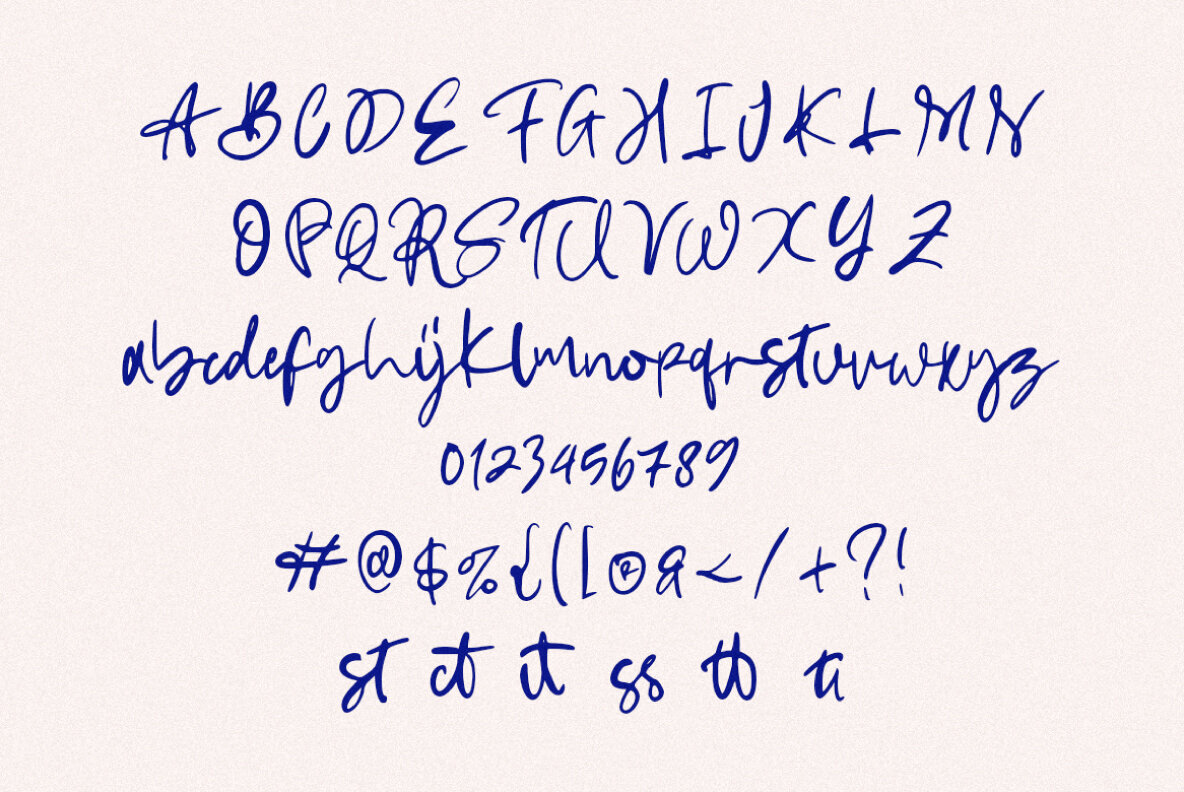 A B C D E F G H I J K L M N
O P Q R S T U V W X Y Z
abcdefghijklmnopqrstuvwxyz
0123456789
# @ $ % { ( [ ® & < / + ? !
st ct it ss tt ti